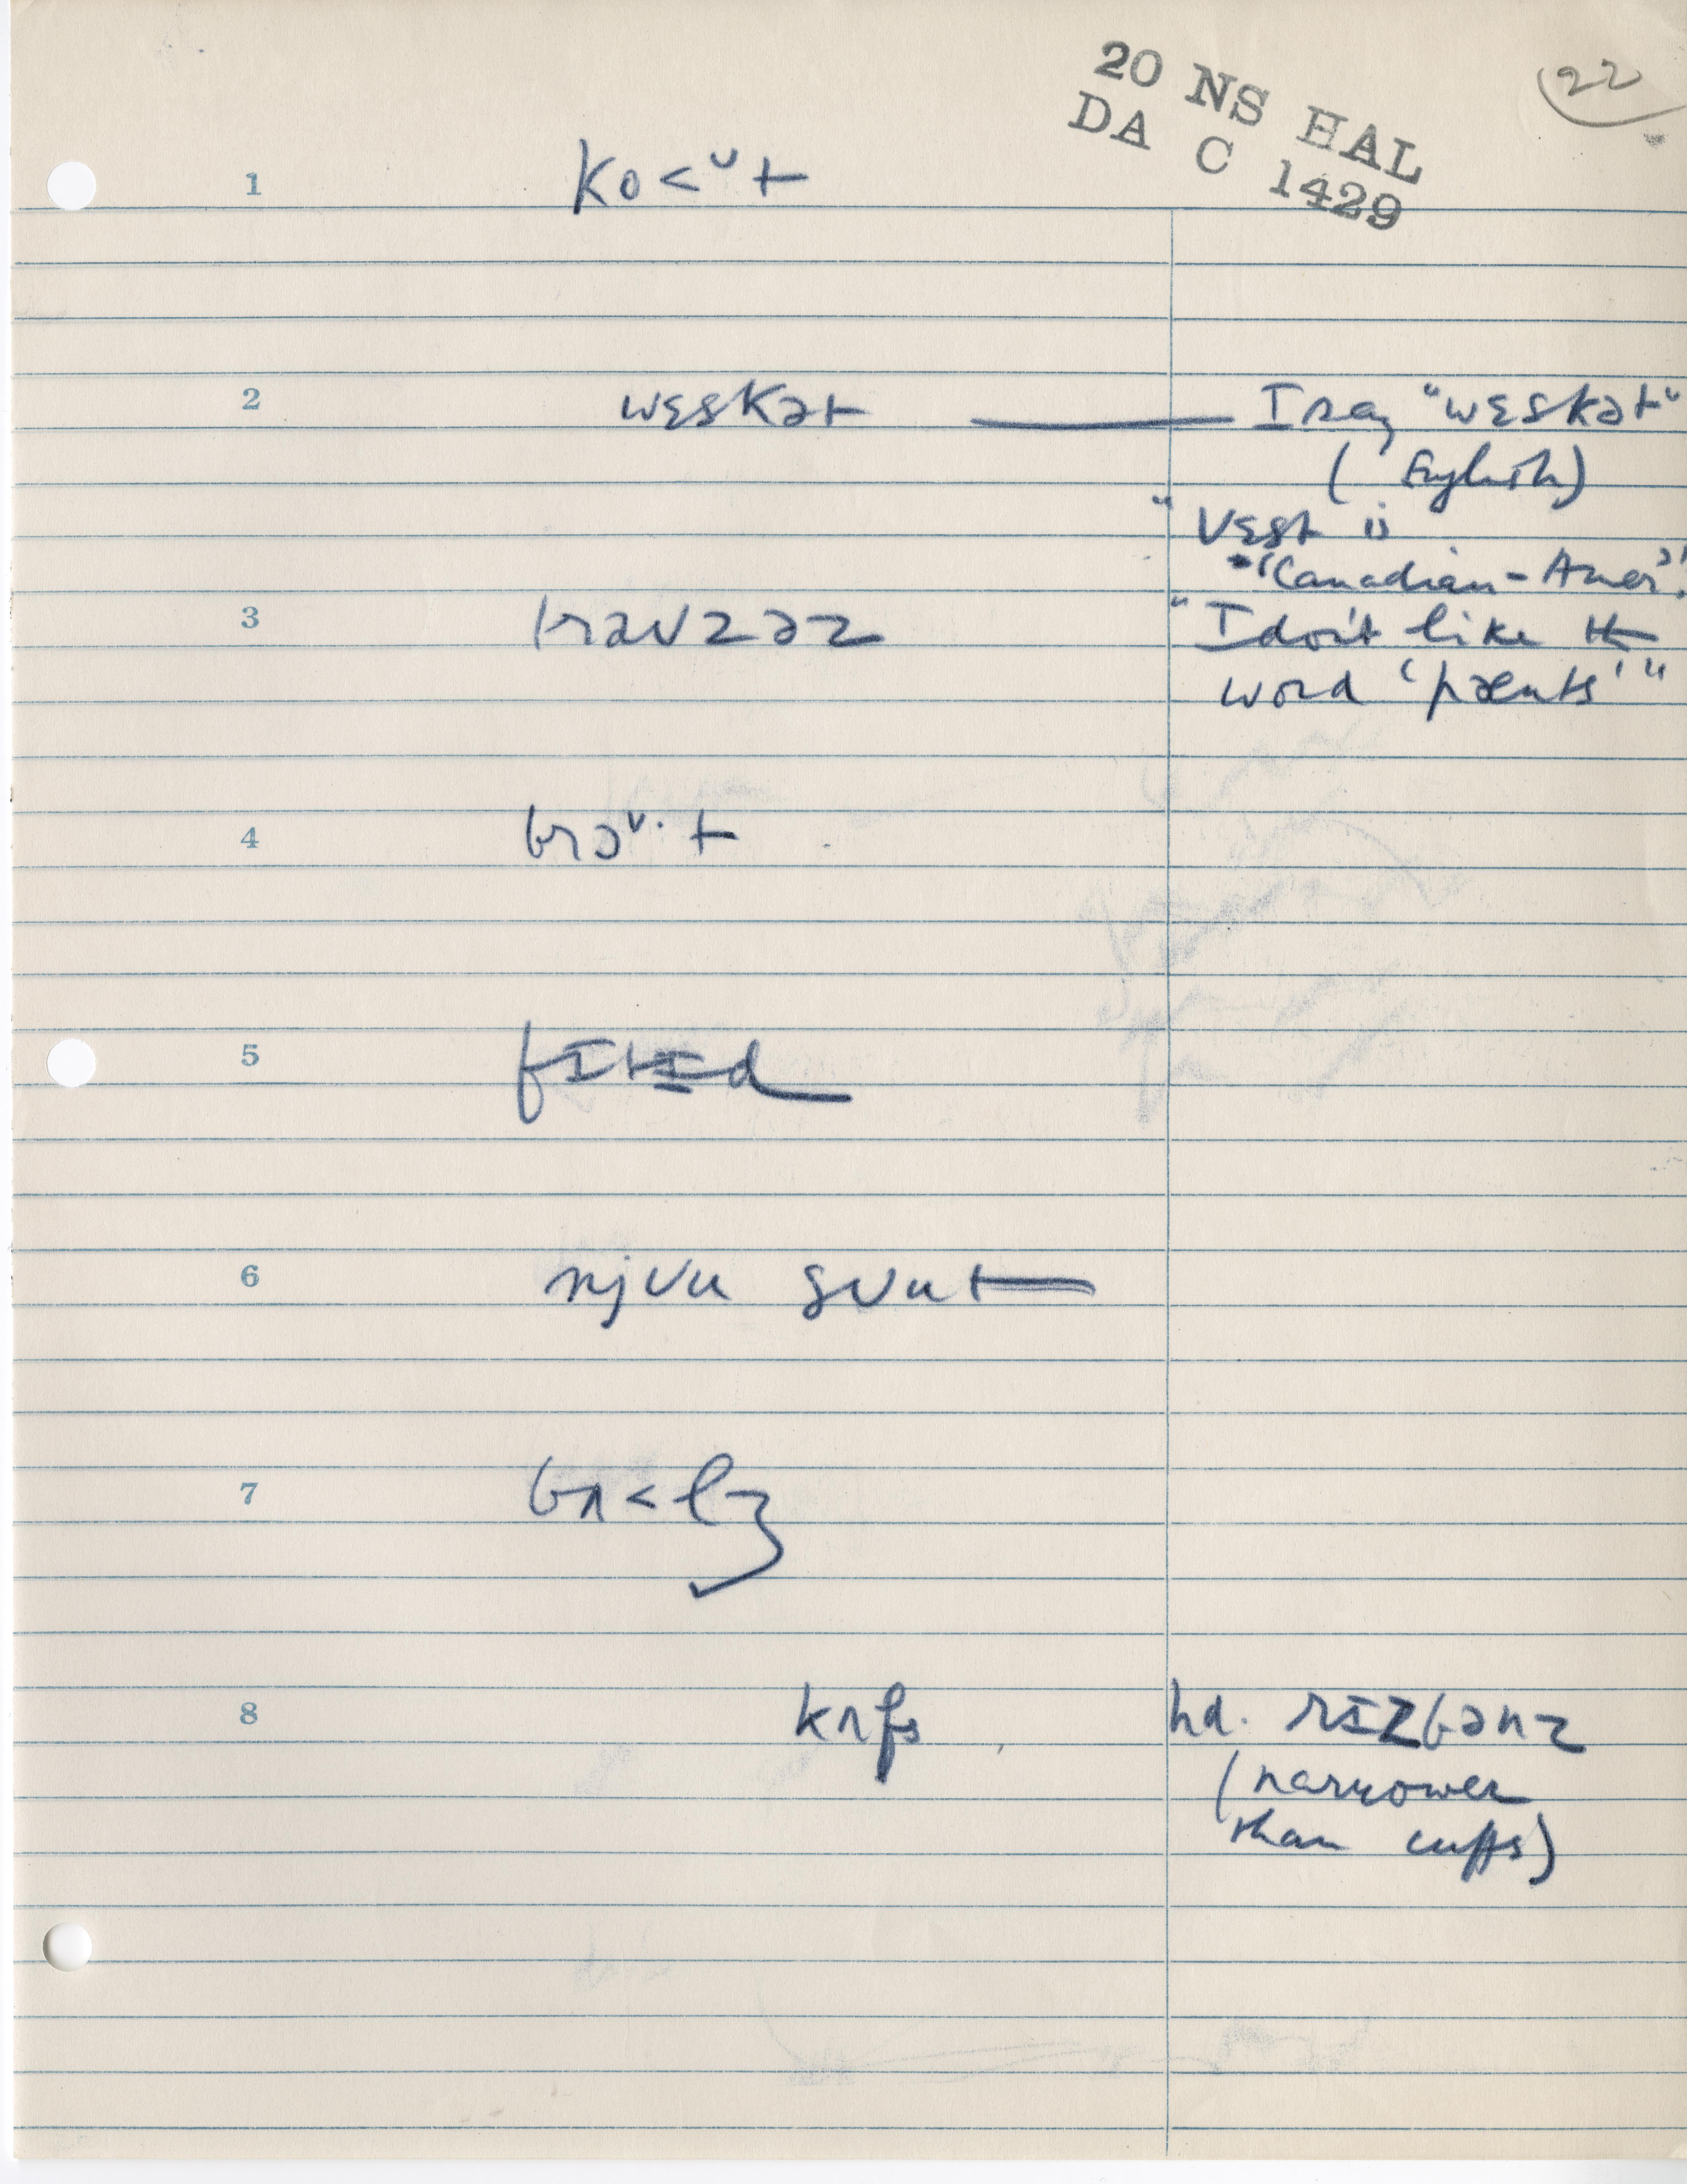 20 NS HAL
DA C 1429
22
1 ko<ᵁt
2 wɛskət — I say "wɛskət"
(English)
"Vɛst is
"Canadian-Amer".
3 traʊzəz "I don't like the
word 'pænts'"
4 brɔᵁ·t
5 fɪtɪd
6 njuu suut
7
8 kʌfs hd. rɪzbənz
(narrower
than cuffs)